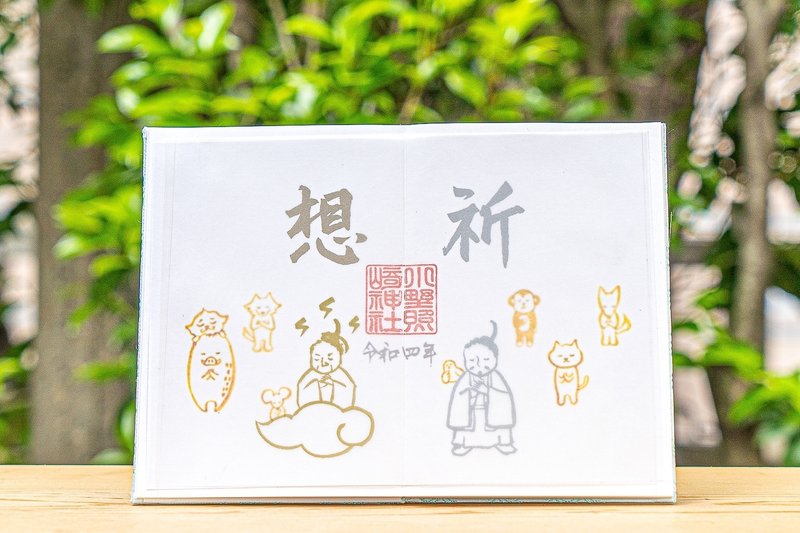 祈
想
小野照
崎神社
令和四年